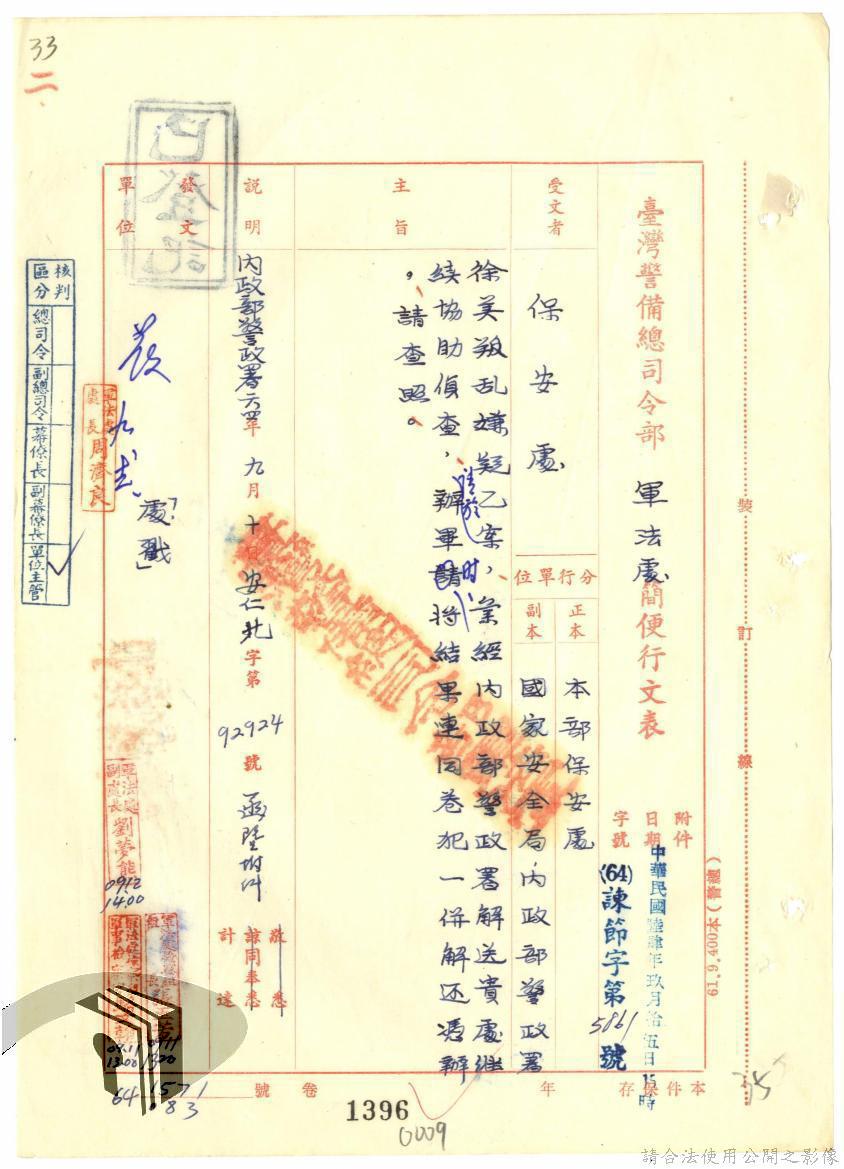 33
二
已登記
臺灣警備總司令部 軍法處簡便行文表
附件
日期 中華民國陸肆年玖月拾伍日15時
字號 (64)諫節字第5861號
受文者 保安處
分行單位
正本 本部保安處
副本 國家安全局、內政部警政署
主旨
徐美叛乱嫌疑乙案,業經內政部警政署解送貴處继
续協助偵查,請於辦畢時將結果連同卷犯一併解还憑辦
。請查照。
說明 內政部警政署六四年九月十日安仁北字第92924號函
敬悉
諒同奉悉
計達
發文單位
發
「處戳」
軍法處處長周濟良
軍法處副處長劉夢能
0912
1400
09.11
1300
0911
1300
核判區分
總司令
副總司令
幕僚長
副幕僚長
單位主管
裝訂線
61.9.400本(警總)
本件保存 年 卷 號
64 1571
.83
1396
0009
75
請合法使用公開之影像